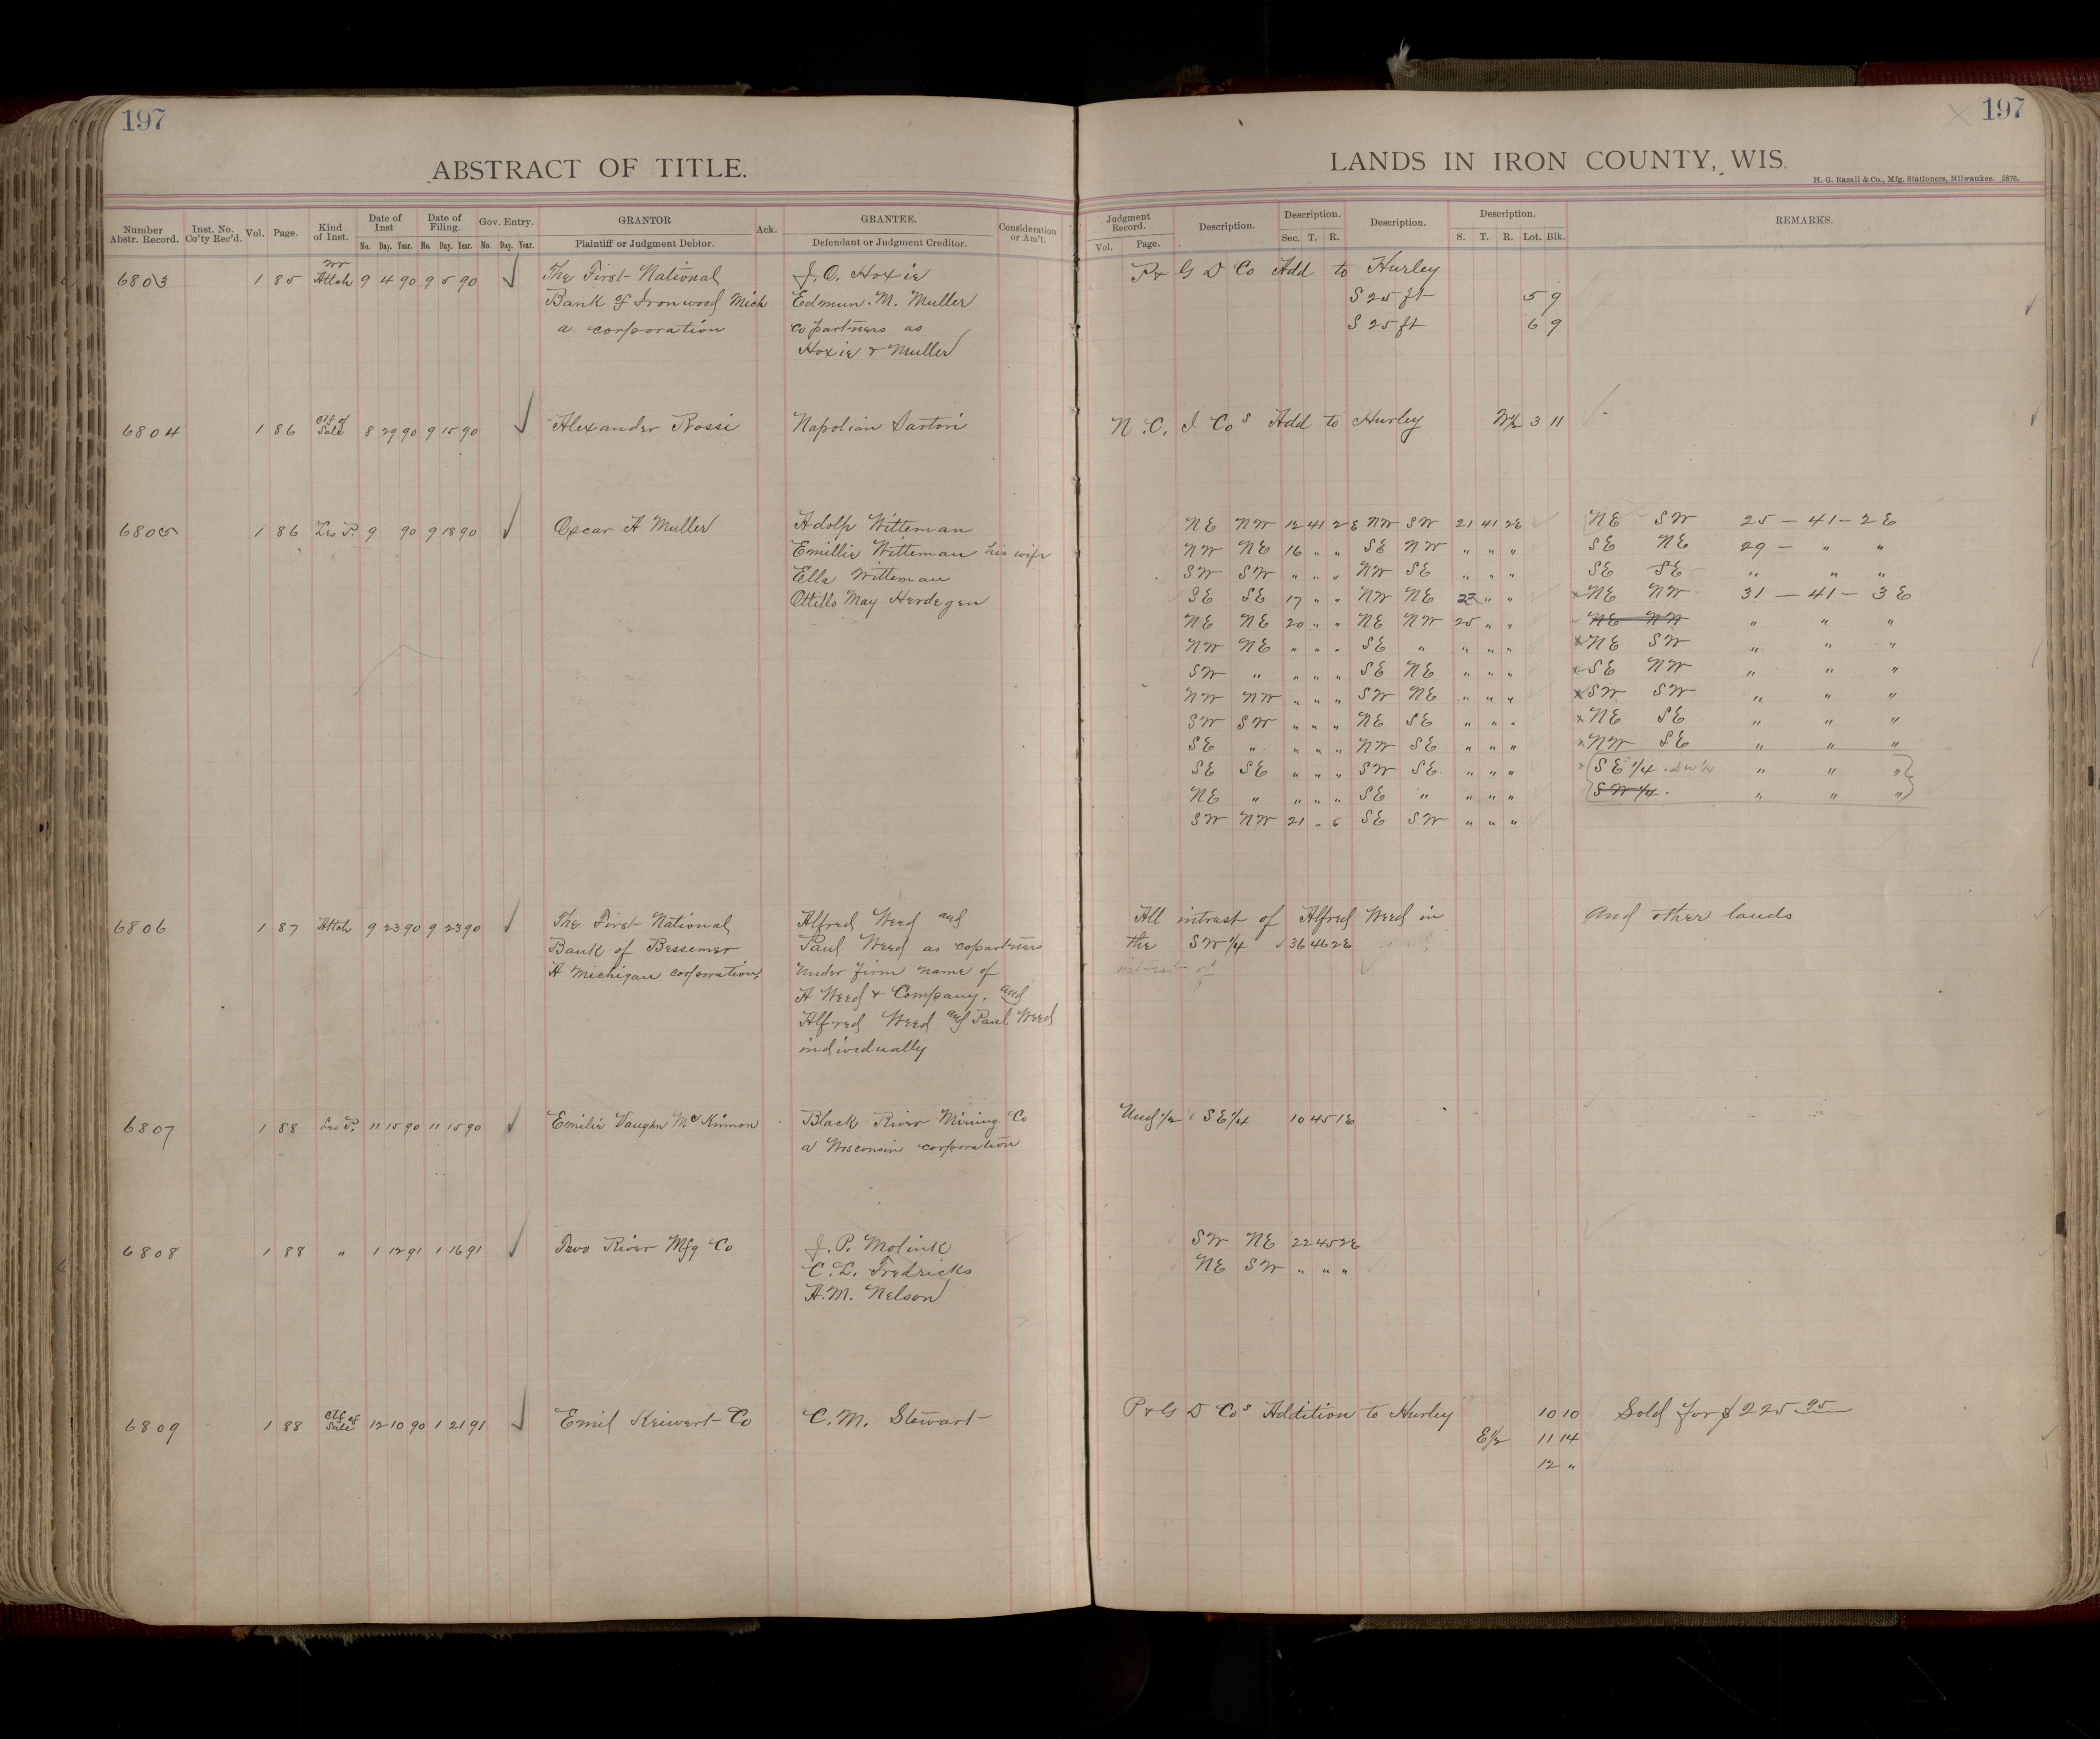 197
ABSTRACT OF TITLE.
Number Abstr. Record. Inst. No. Co'ty Rec'd. Vol. Page. Kind of Inst. Date of Inst Date of Filing. Gov. Entry. GRANTOR Ack. GRANTEE. Consideration or Am't.
Mo. Day. Year. Mo. Day. Year. Mo. Day. Year. Plaintiff or Judgment Debtor. Defendant or Judgment Creditor.
6803 1 85 Wr Attch 9 4 90 9 5 90 The First National J. O. Hoxie
Bank of Ironwood Mich Edmun. M. Muller
a corporation copartners as
Hoxie & Muller
6804 1 86 Ctf of Sale 8 29 90 9 15 90 Alexander Rossi Napolian Sartori
6805 1 86 Les P. 9 90 9 18 90 Oscar A Muller Adolph Witteman
Emillie Witteman his wife
Ella Witteman
Ottillo May Herdegen
6806 1 87 Attch 9 23 90 9 23 90 The First National Alfred Weed and
Bank of Bessemer Paul Weed as copartners
A Michigan corporation, under firm name of
A Weed & Company, and
Alfred Weed and Paul Weed
individually
6807 1 88 Les P. 11 15 90 11 15 90 Emilie Vaughn McKinnon Black River Mining Co
a Wisconsin corporation
6808 1 88 " 1 12 91 1 16 91 Two River Mfg Co J. P. Molink
C. L. Fredricks
A. M. Nelson
6809 1 88 Ctf of Sale 12 10 90 1 21 91 Emil Keiwert Co C. M. Stewart
197
LANDS IN IRON COUNTY, WIS.
H. G. Razall & Co., Mfg. Stationers, Milwaukee. 5676.
Judgment Record. Description. Description. Description. Description. REMARKS.
Vol. Page. Sec. T. R. S. T. R. Lot. Blk.
P & G D Co Add to Hurley
S 25 ft 5 9
S 25 ft 6 9
N. C. I Cos Add to Hurley W½ 3 11
NE NW 12 41 2E NW SW 21 41 2E NE SW 25 — 41 — 2E
NW NE 16 " " SE NW " " " SE NE 29 — " "
SW SW " " " NW SE " " " SE SE " " "
SE SE 17 " " NW NE 23 " " x NE NW 31 — 41 — 3E
NE NE 20 " " NE NW 25 " " NE NW " " "
NW NE " " " SE " " " " x NE SW " " "
SW " " " " SE NE " " " x SE NW " " "
NW NW " " " SW NE " " " x SW SW " " "
SW SW " " " NE SE " " " x NE SE " " "
SE " " " " NW SE " " " x NW SE " " "
SE SE " " " SW SE " " " x SE 1/4 . SW 1/4 " " "
NE " " " " SE " " " " SW 1/4 . " " "
SW NW 21 " " SE SW " " "
All intrest of Alfred Weed in And other lands
the SW 1/4 36 46 2E
intrest of
Und 1/2 SE 1/4 10 45 1E
SW NE 22 45 2E
NE SW " " "
P & G D Cos Addition to Hurley 10 10 Sold for $225 95
E½ 11 14
12 "